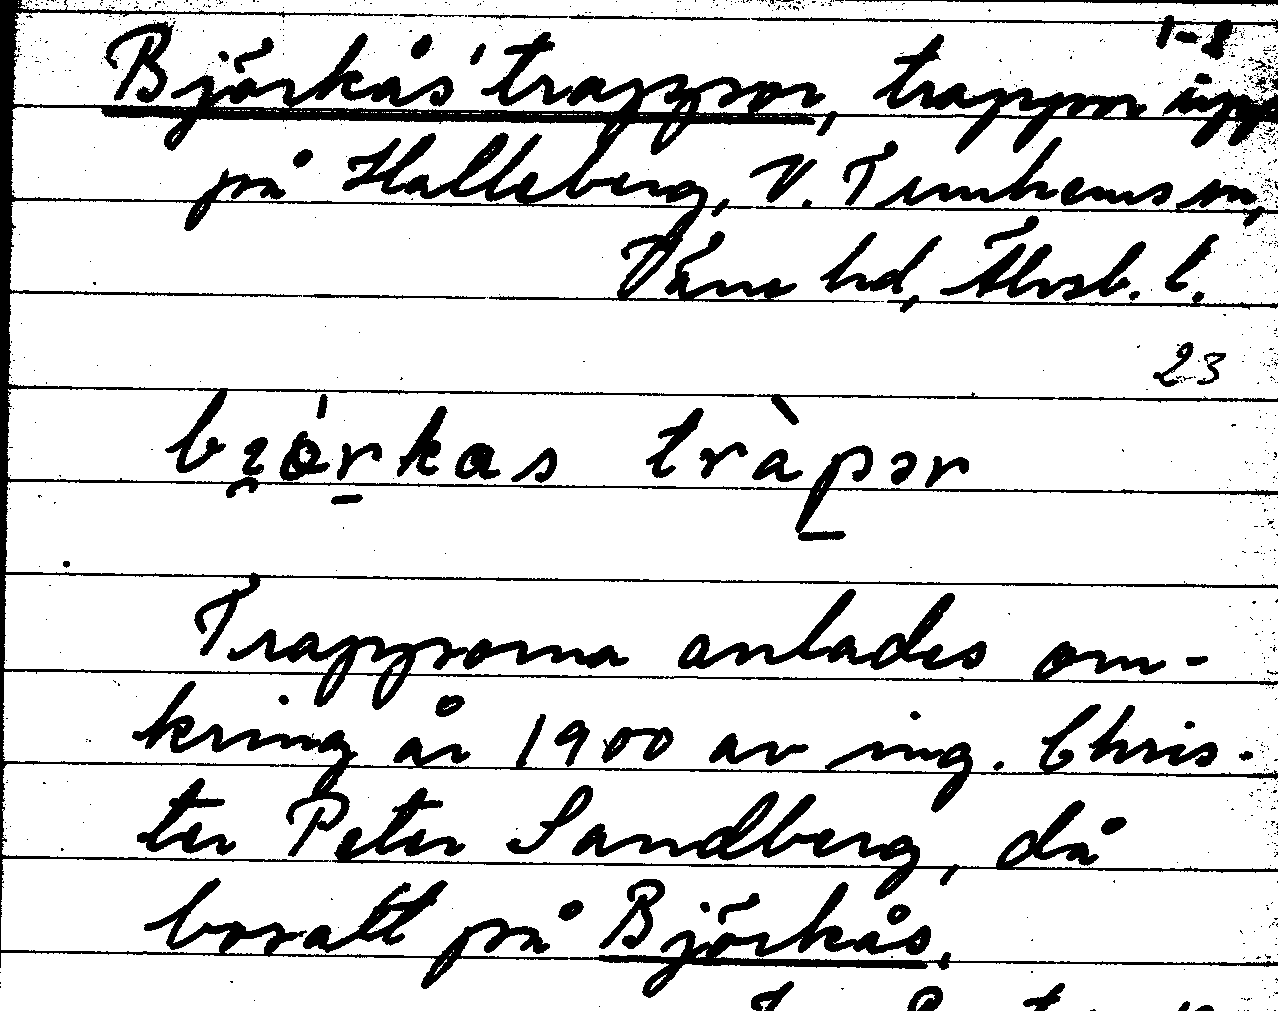 1-2
Björkås' trappor, trappor upp
på Halleberg, V. Tunhems sn,
Väne hd, Älvsb. l.
23
tràpər
Trapporna anlades om-
kring år 1900 av ing. Chris-
ter Peter Sandberg, då
bosatt på Björkås.